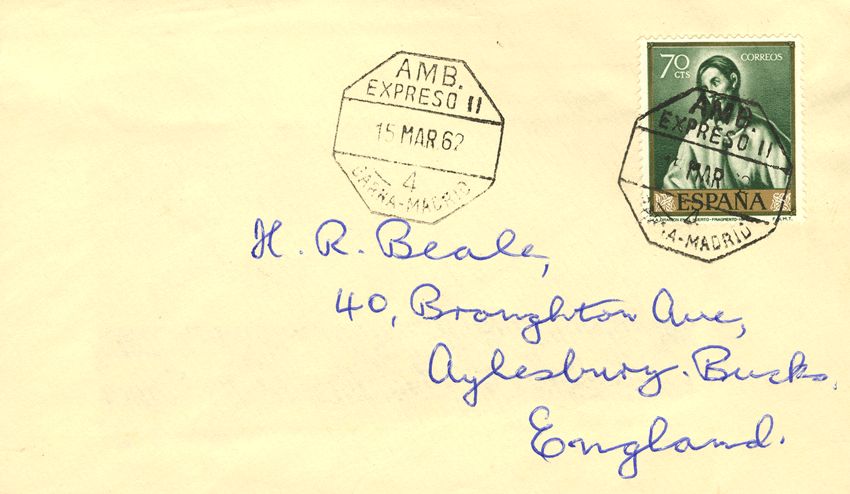 AMB.
EXPRESO II
15 MAR 62
4
BARNA-MADRID
70 CTS
CORREOS
AMB.
EXPRESO II
MAR
4
-MADRID
ESPAÑA
H. R. Beale,
40, Broughton Ave,
Aylesbury. Bucks,
England.